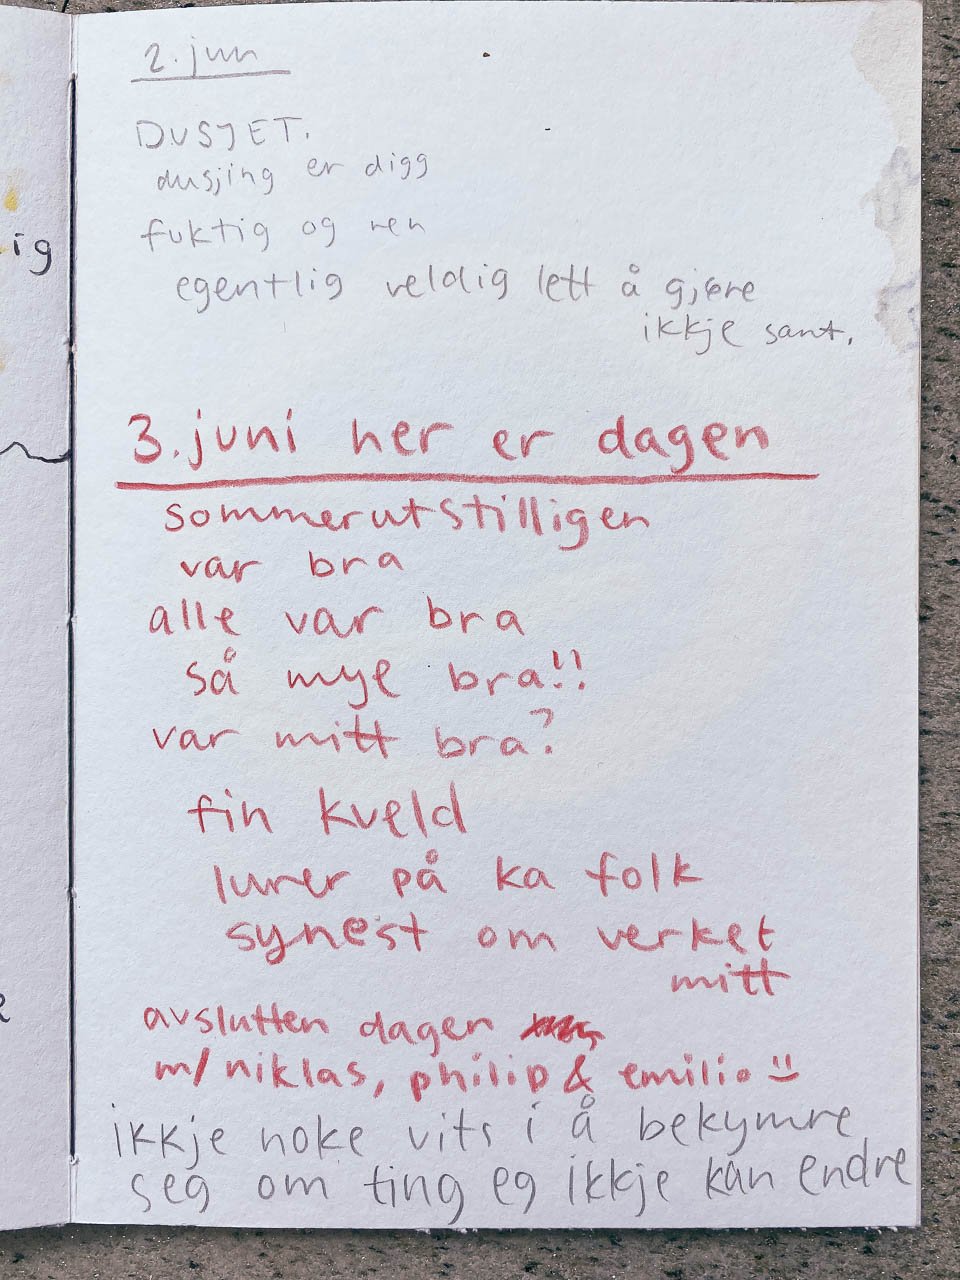 2. jun
DUSJET.
dusjing er digg
fuktig og ren
egentlig veldig lett å gjøre
ikkje sant.
ig
3. juni her er dagen
sommerutstilligen
var bra
alle var bra
så mye bra!!
var mitt bra?
fin kveld
lurer på ka folk
synest om verket
mitt
avslutten dagen
m/ niklas, philip & emilio :)
ikkje noke vits i å bekymre
seg om ting eg ikkje kan endre